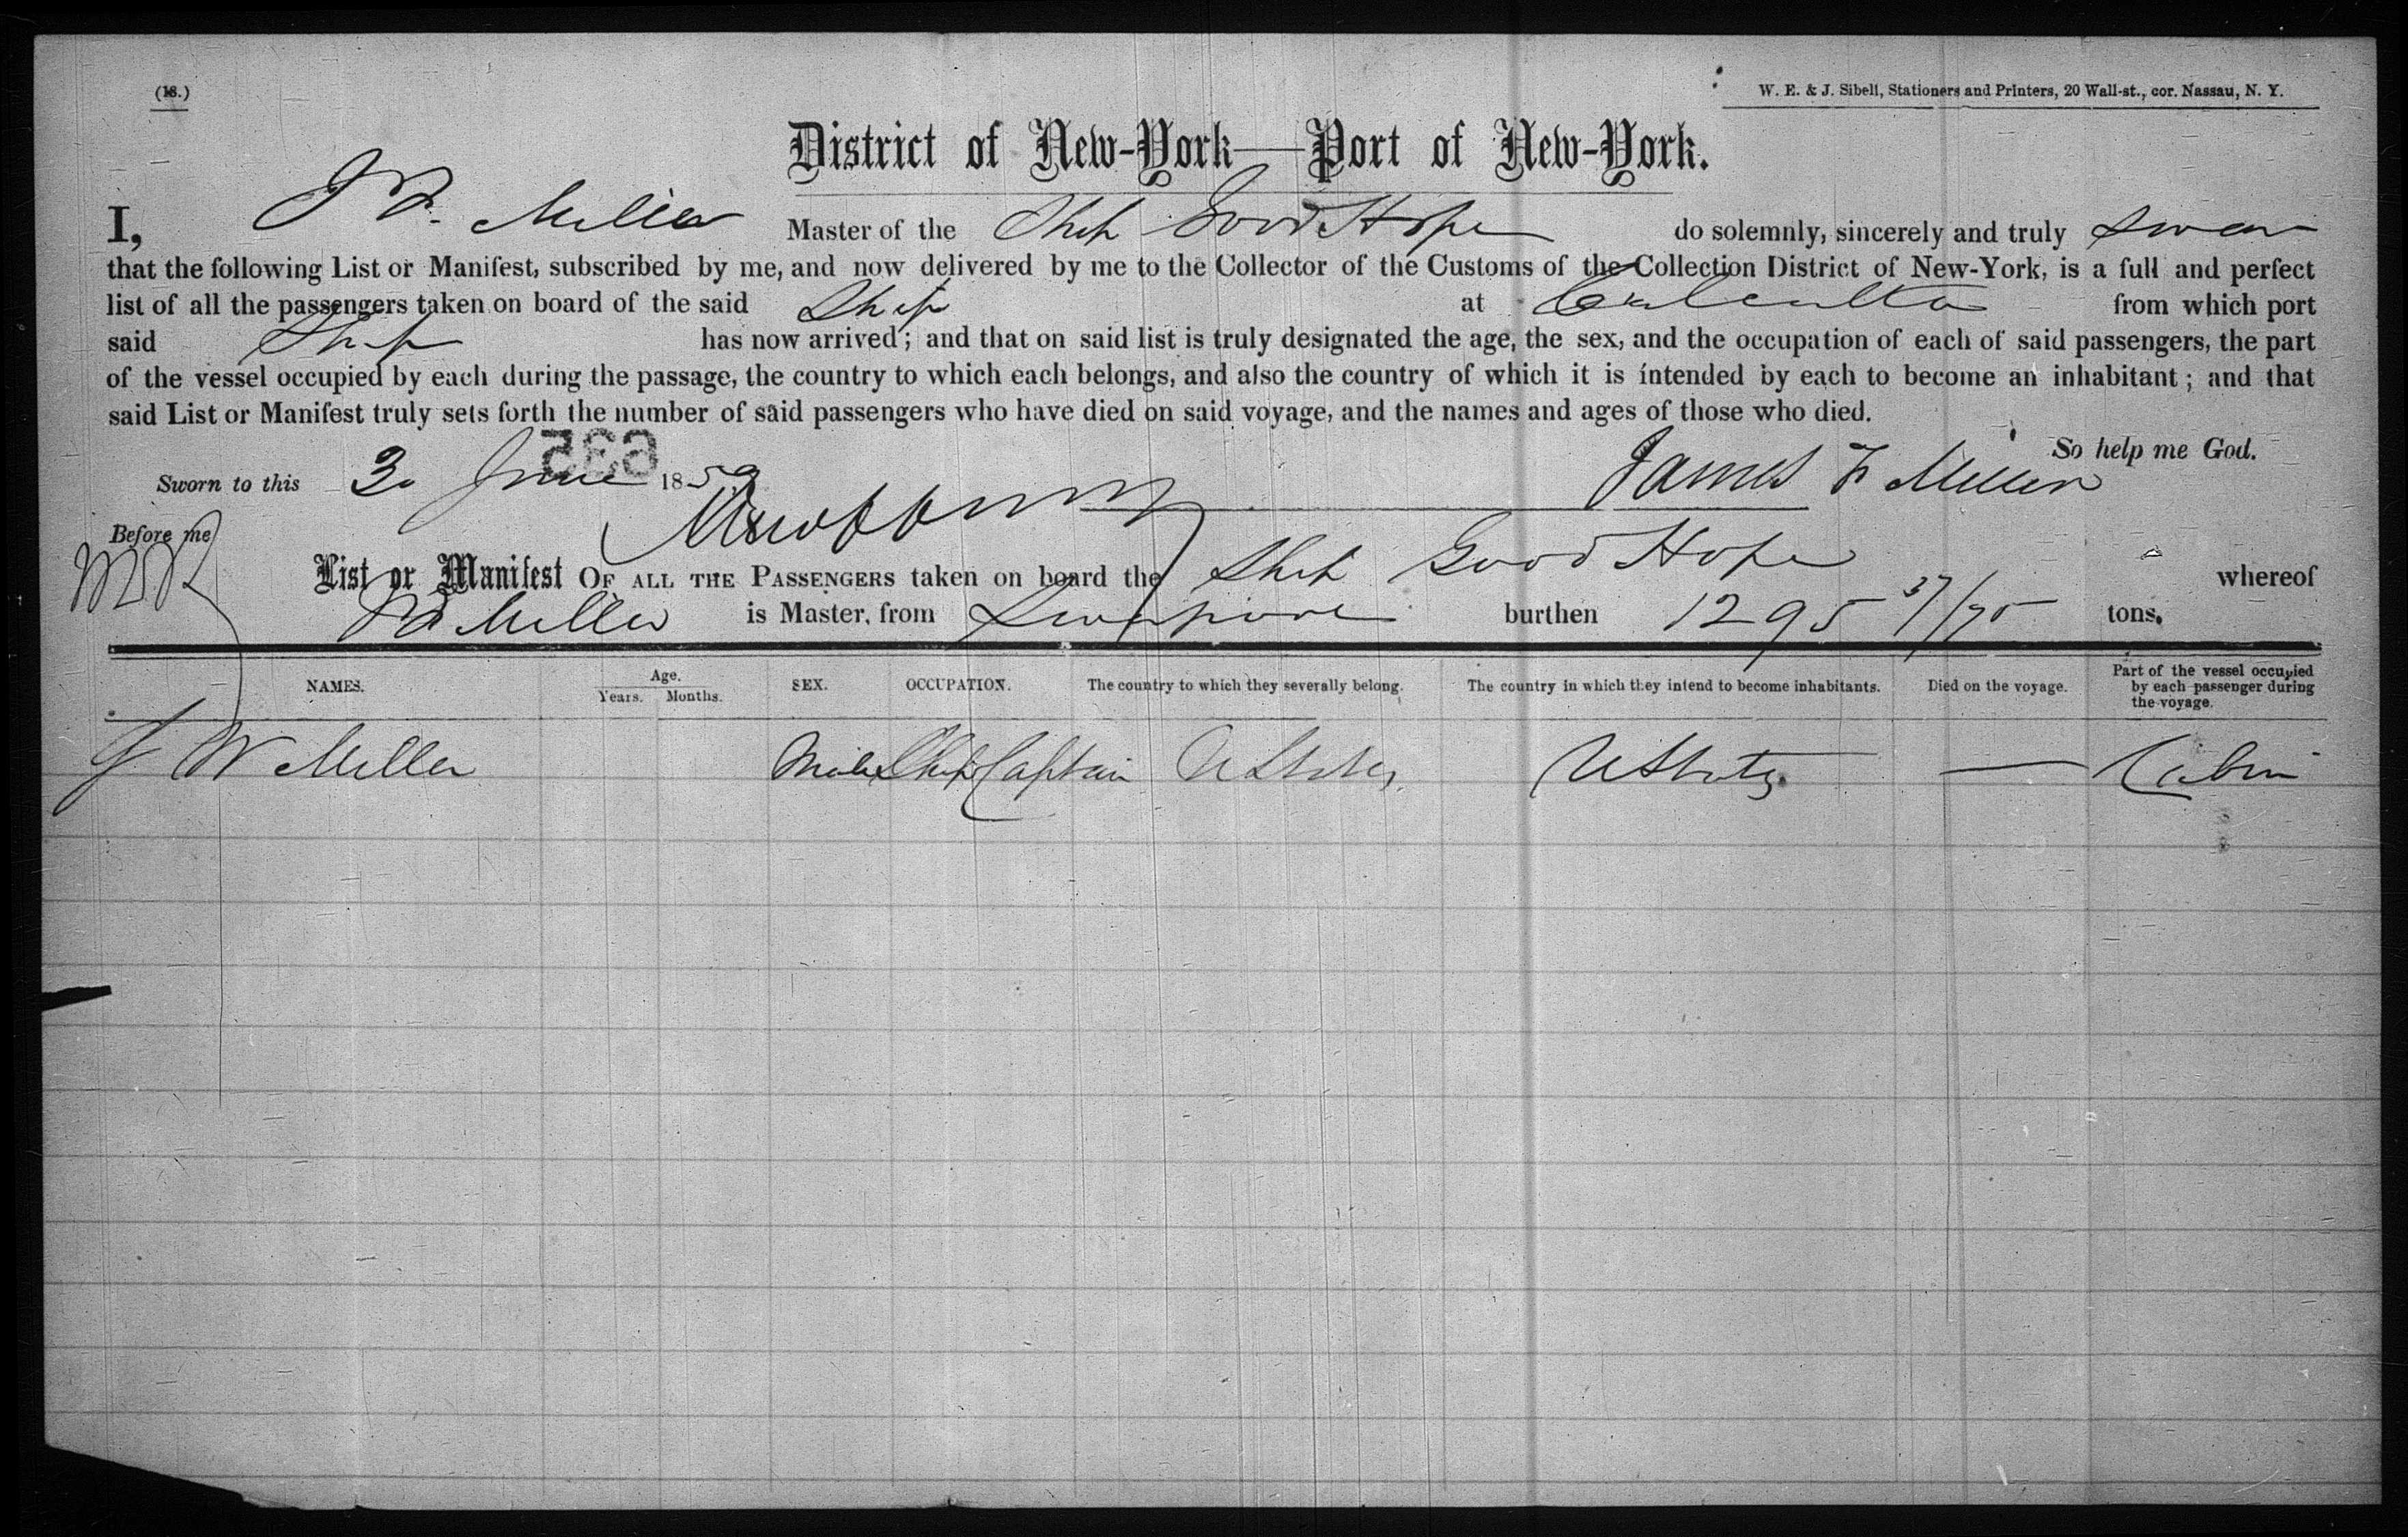 (18.)
W. E. & J. Sibell, Stationers and Printers, 20 Wall-st., cor. Nassau, N. Y.
District of New-York—Port of New-York.
I, J F. Miller Master of the Ship Good Hope do solemnly, sincerely and truly swear
that the following List or Manifest, subscribed by me, and now delivered by me to the Collector of the Customs of the Collection District of New-York, is a full and perfect
list of all the passengers taken on board of the said Ship at Calcutta from which port
said Ship has now arrived; and that on said list is truly designated the age, the sex, and the occupation of each of said passengers, the part
of the vessel occupied by each during the passage, the country to which each belongs, and also the country of which it is intended by each to become an inhabitant; and that
said List or Manifest truly sets forth the number of said passengers who have died on said voyage, and the names and ages of those who died.
So help me God.
635
Sworn to this 30 June 1859 James F Miller
Before me
List or Manifest OF ALL THE PASSENGERS taken on board the Ship Good Hope whereof
J F Miller is Master, from burthen 1295 37/95 tons.
NAMES. Age. Years. Months. SEX. OCCUPATION. The country to which they severally belong. The country in which they intend to become inhabitants. Died on the voyage. Part of the vessel occupied by each passenger during the voyage.
W Miller Male Ship Captain U States U States — Cabin